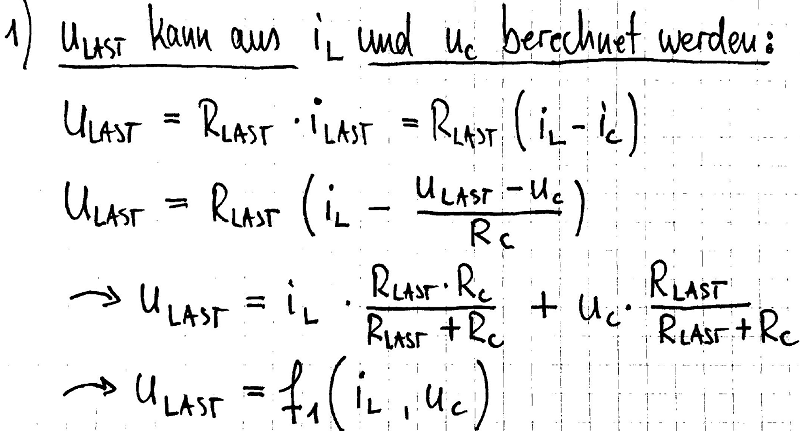 1) u_LAST kann aus i_L und u_C berechnet werden:
u_LAST = R_LAST · i_LAST = R_LAST (i_L - i_C)
u_LAST = R_LAST (i_L - (u_LAST - u_C) / R_C)
→ u_LAST = i_L · (R_LAST · R_C) / (R_LAST + R_C) + u_C · R_LAST / (R_LAST + R_C)
→ u_LAST = f_1 (i_L, u_C)